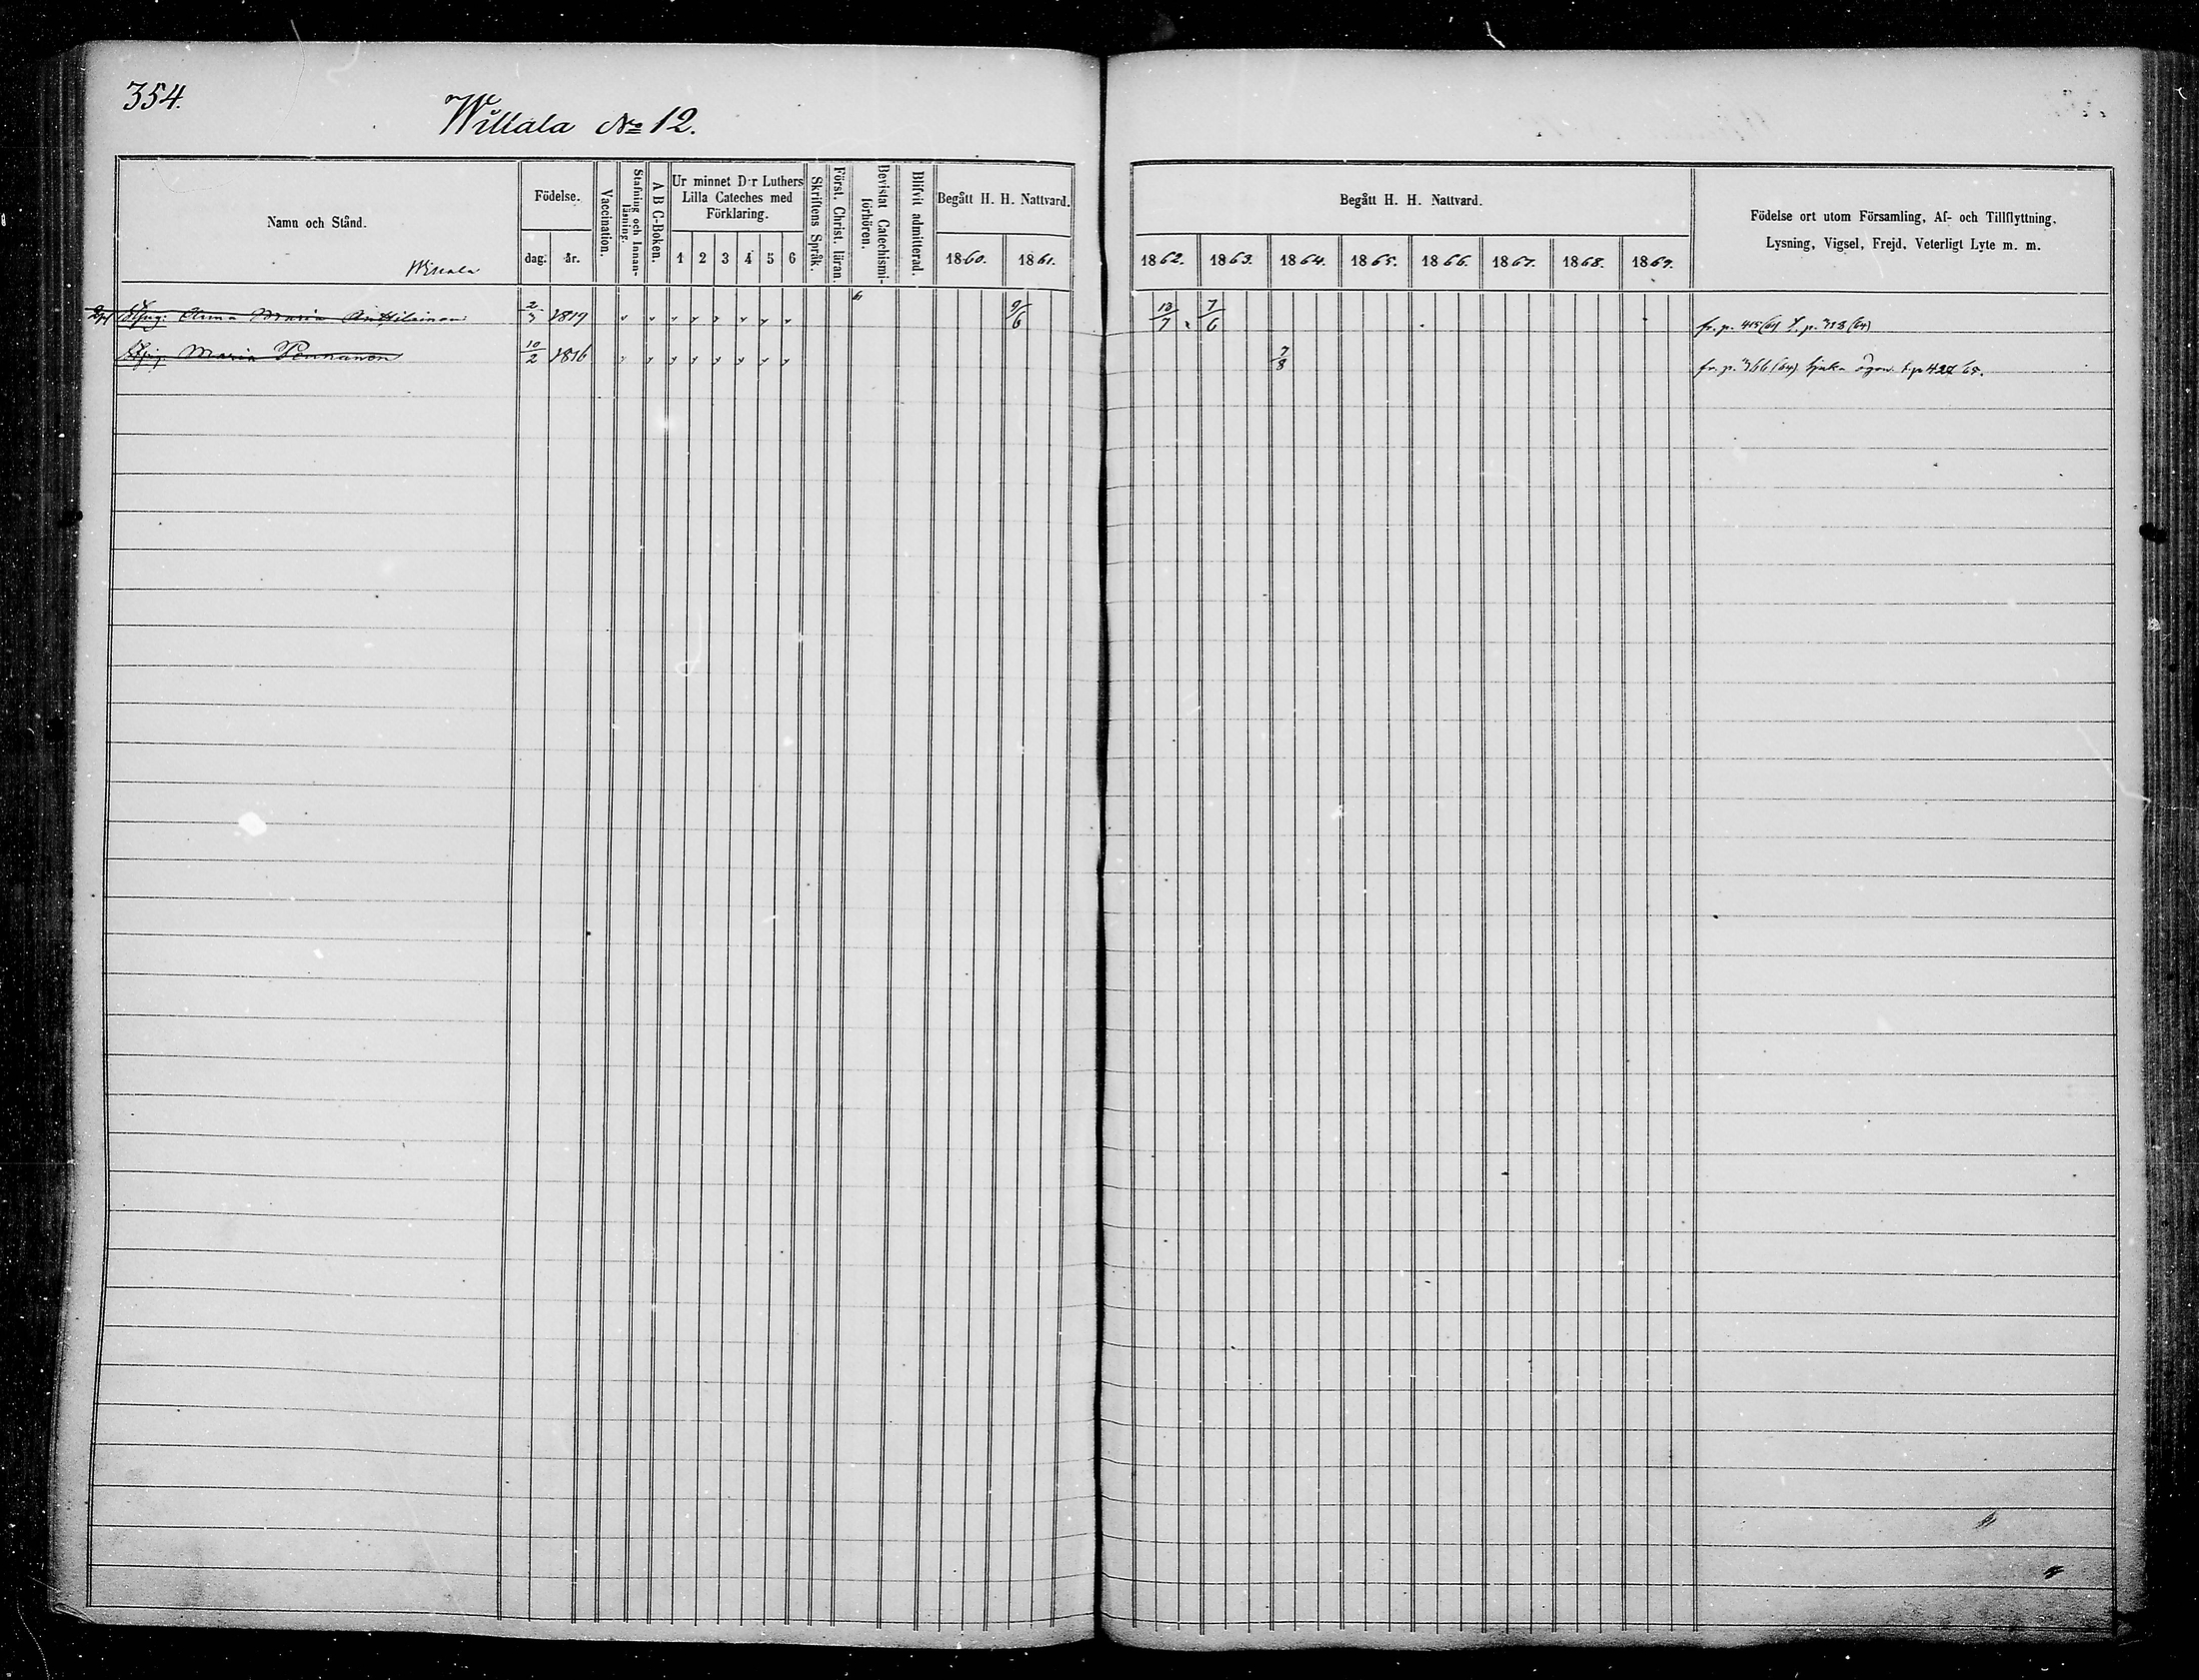 354.
Willala No 12.
Namn och Stånd.
Willala
Födelse.
dag. år.
Vaccination.
Stafning och Innan-
läsning.
A B C-Boken.
Ur minnet D:r Luthers
Lilla Cateches med
Förklaring.
1 2 3 4 5 6
Skriftens Språk.
Först. Christ. läran.
Bevistat Catechismi-
förhören.
Blifvit admitterad.
Begått H. H. Nattvard.
1860. 1861.
Begått H. H. Nattvard.
1862. 1863. 1864. 1865. 1866. 1867. 1868. 1869.
Födelse ort utom Församling, Af- och Tillflyttning,
Lysning, Vigsel, Frejd, Veterligt Lyte m. m.
Anna Maria Anttilainen 2/3 1819 9/6 13/7 7/6 fr. p. 415 (64) t. p. 338 (64)
Maria Pennanen 10/2 1816 7/8 fr. p. 366 (64) sjuka ögon t. p 65.